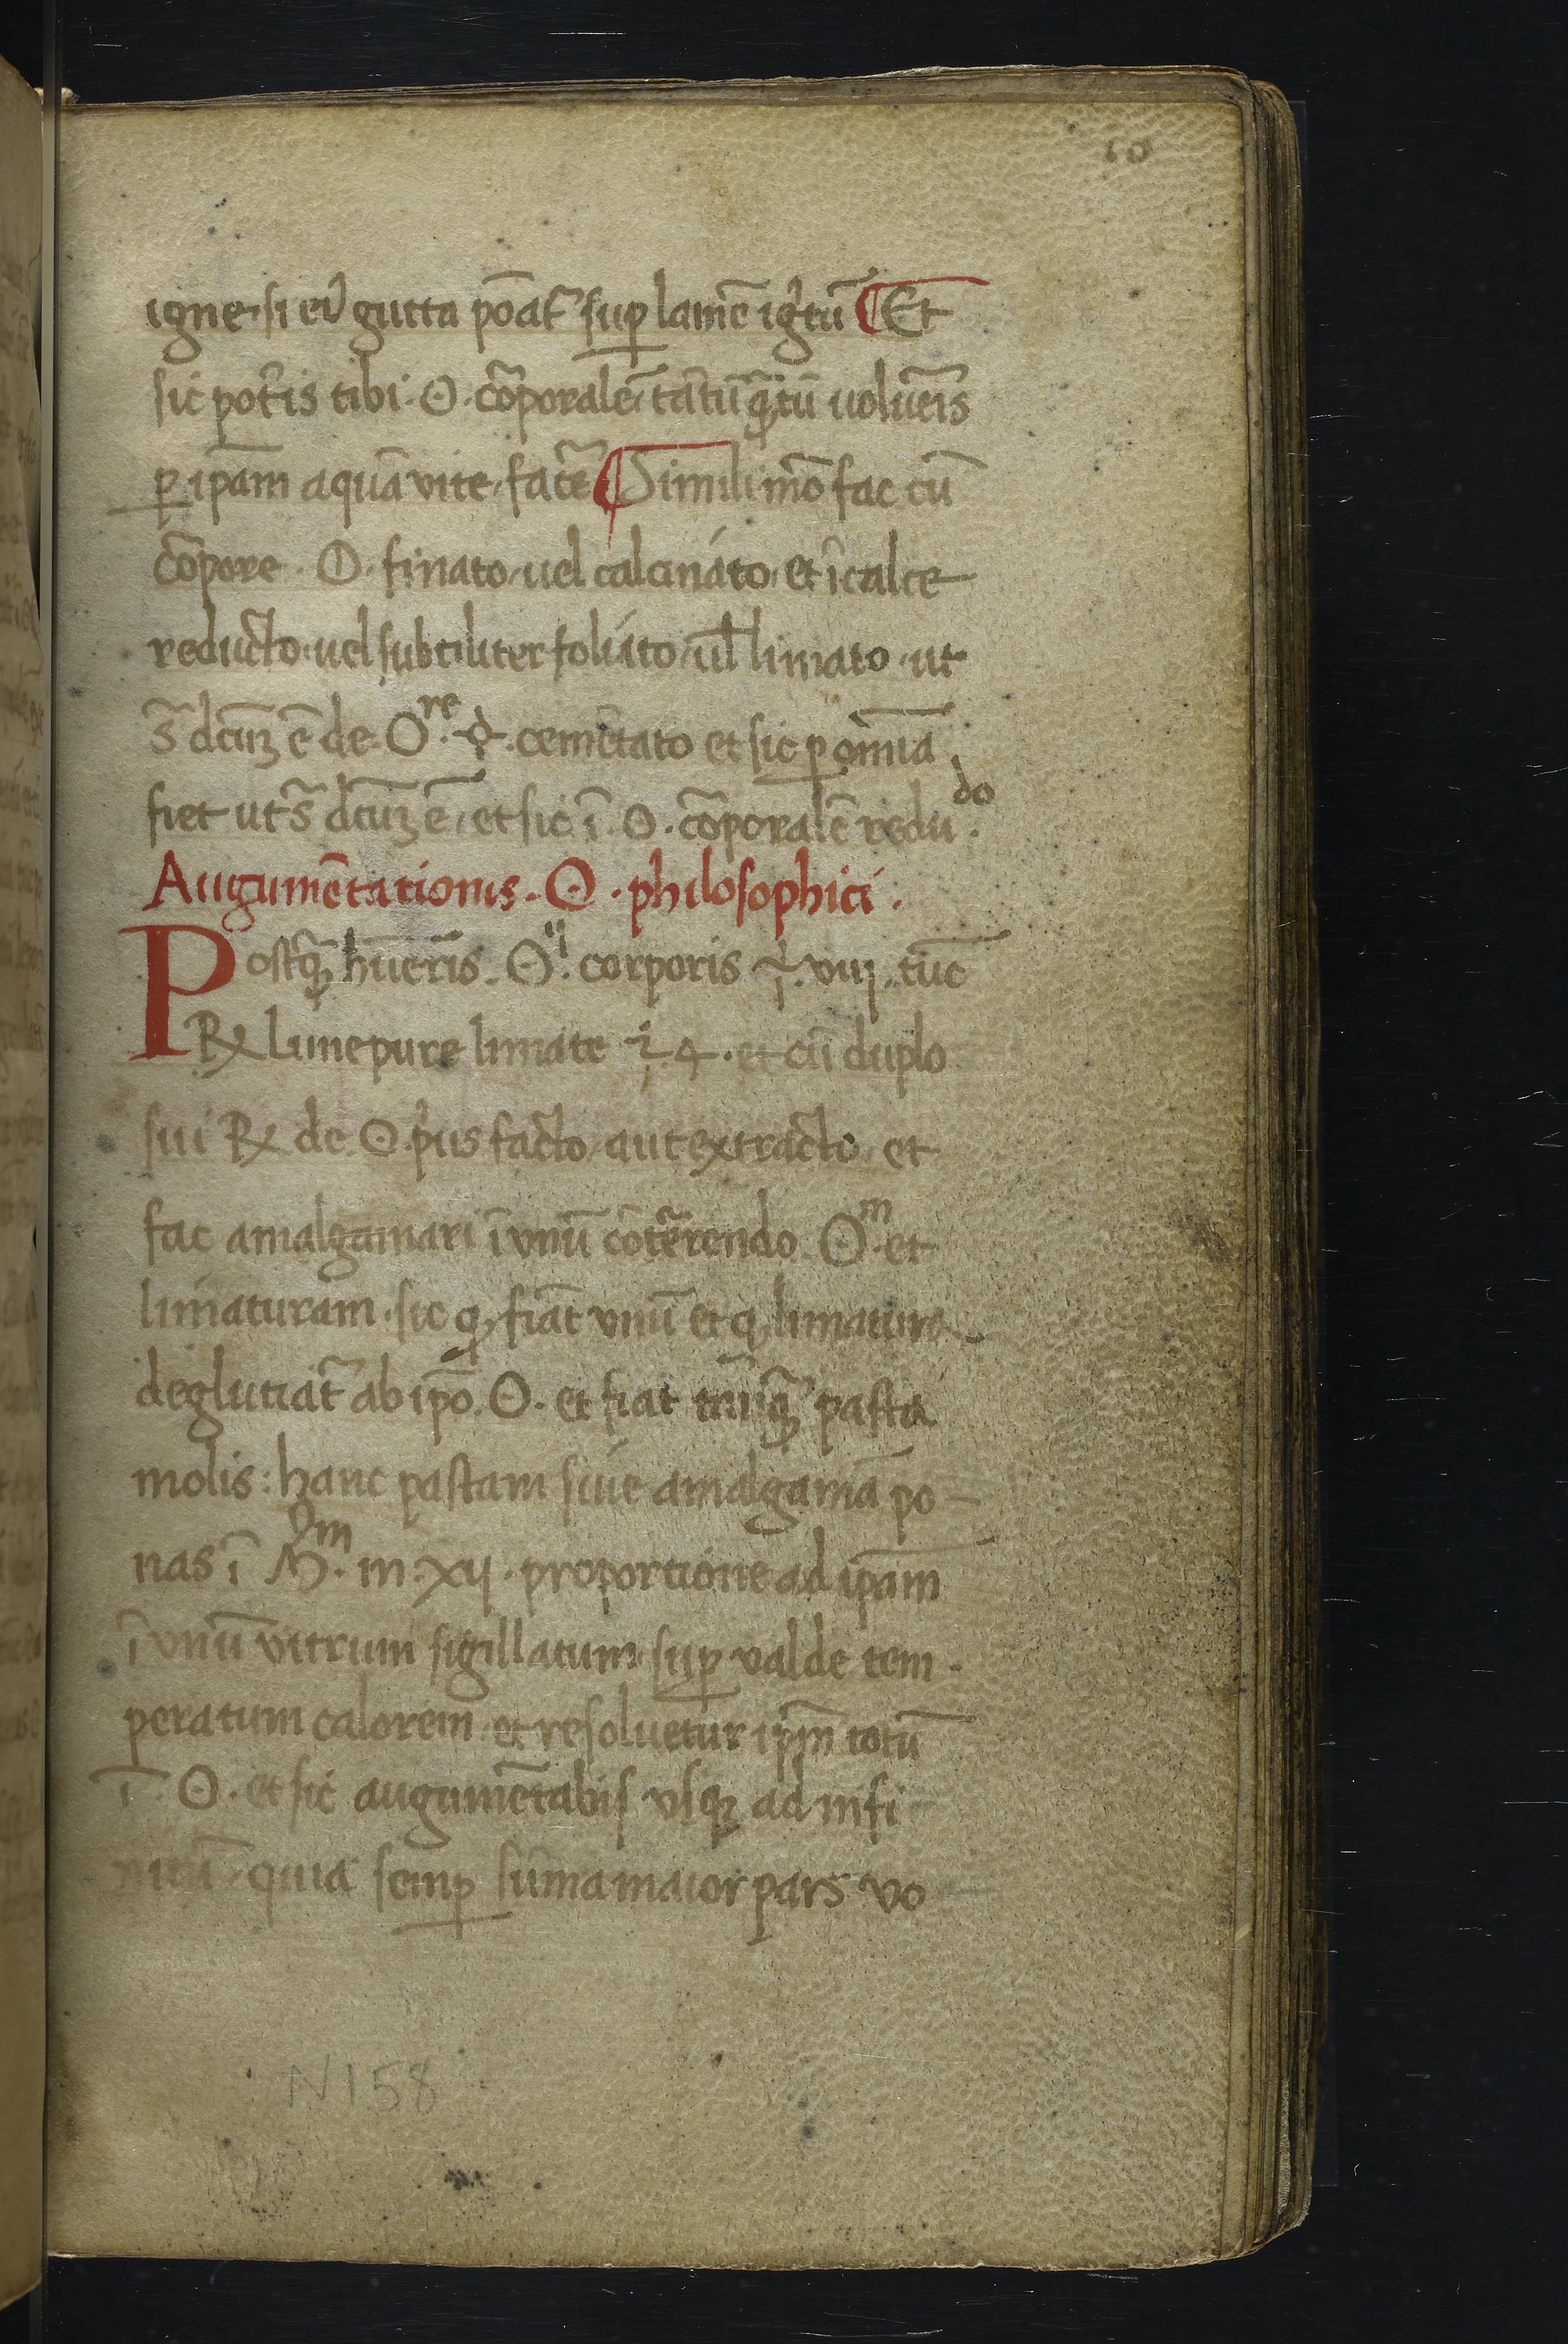 10
igne· si ei᷒ gutta pōat᷑ suꝑ lamē igᷓtū ¶ Et
sic pot᷑is tibi · ☉ · cōꝑorale᷑ tātū q̄ꝫtū uolue᷑is
ꝑ ip̄am aquā vite, fac᷑e ¶ Simili mō fac cū
cōꝑore · ☉ · finato, uel calcinato, et ī calce
reducto, uel subtiliter foliato, ul̄ limato · ut
s̄ dcūꝫ ē de · ☉re · ☿ · cemētato et sic ꝑ om̄ia
fiet ut s̄ dcūꝫ ē, et sic ī · ☉ · cōꝑoralē redudo ·
Augumētationis · ☉ · philosophici ·
Postq̄ꝫ hūeris · ☉ii · corporis ℥ · viij · tūc
℞ lune pure limate ℥ 4 · et cū duplo
sui ℞ de ☉ p̓us facto, aut extracto, et
fac amalgamari ī vnū cōt᷑erendo ☉m · et
limaturam · sic ꝙ fiāt vnū et ꝙ limatura
deglutiat᷑ ab ip̄o · ☉ · et fiat tāq̄ꝫ pasta
molis : hanc pastam siue amalgamā po
nas ī m · in xij · proportione ad ip̄am
ī vnū vitrum sigillatum, suꝑ valde tem
peratum calorem · et resoluetur ip̄m totū
ī · ☉ · et sic augumētabis vsqꝫ ad infi
nitū · quia semꝑ sūma maior pars vo
N 158